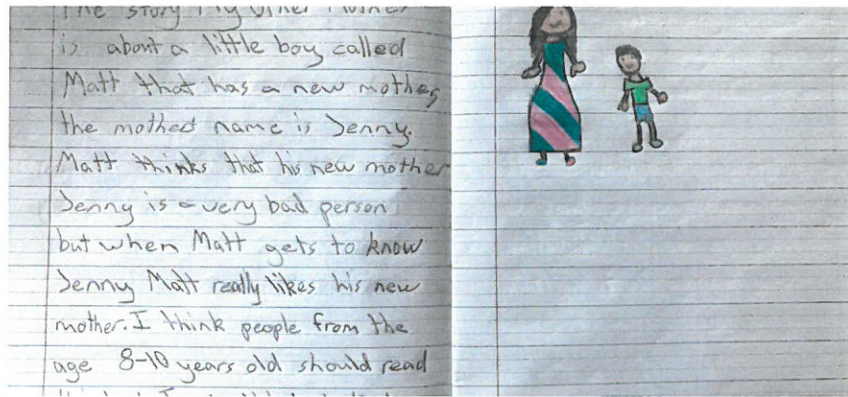 The story My Other Mother
is about a little boy called
Matt that has a new mother,
the mothers name is Jenny.
Matt thinks that his new mother
Jenny is a very bad person
but when Matt gets to know
Jenny Matt really likes his new
mother. I think people from the
age 8-10 years old should read